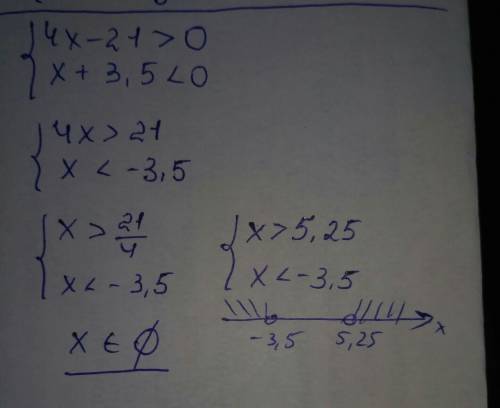 { 4x-21>0
{ x+3,5<0
{ 4x>21
{ x<-3,5
{ x>21/4
{ x<-3,5
{ x>5,25
{ x<-3,5
-3,5 5,25 x
x ∈ ∅